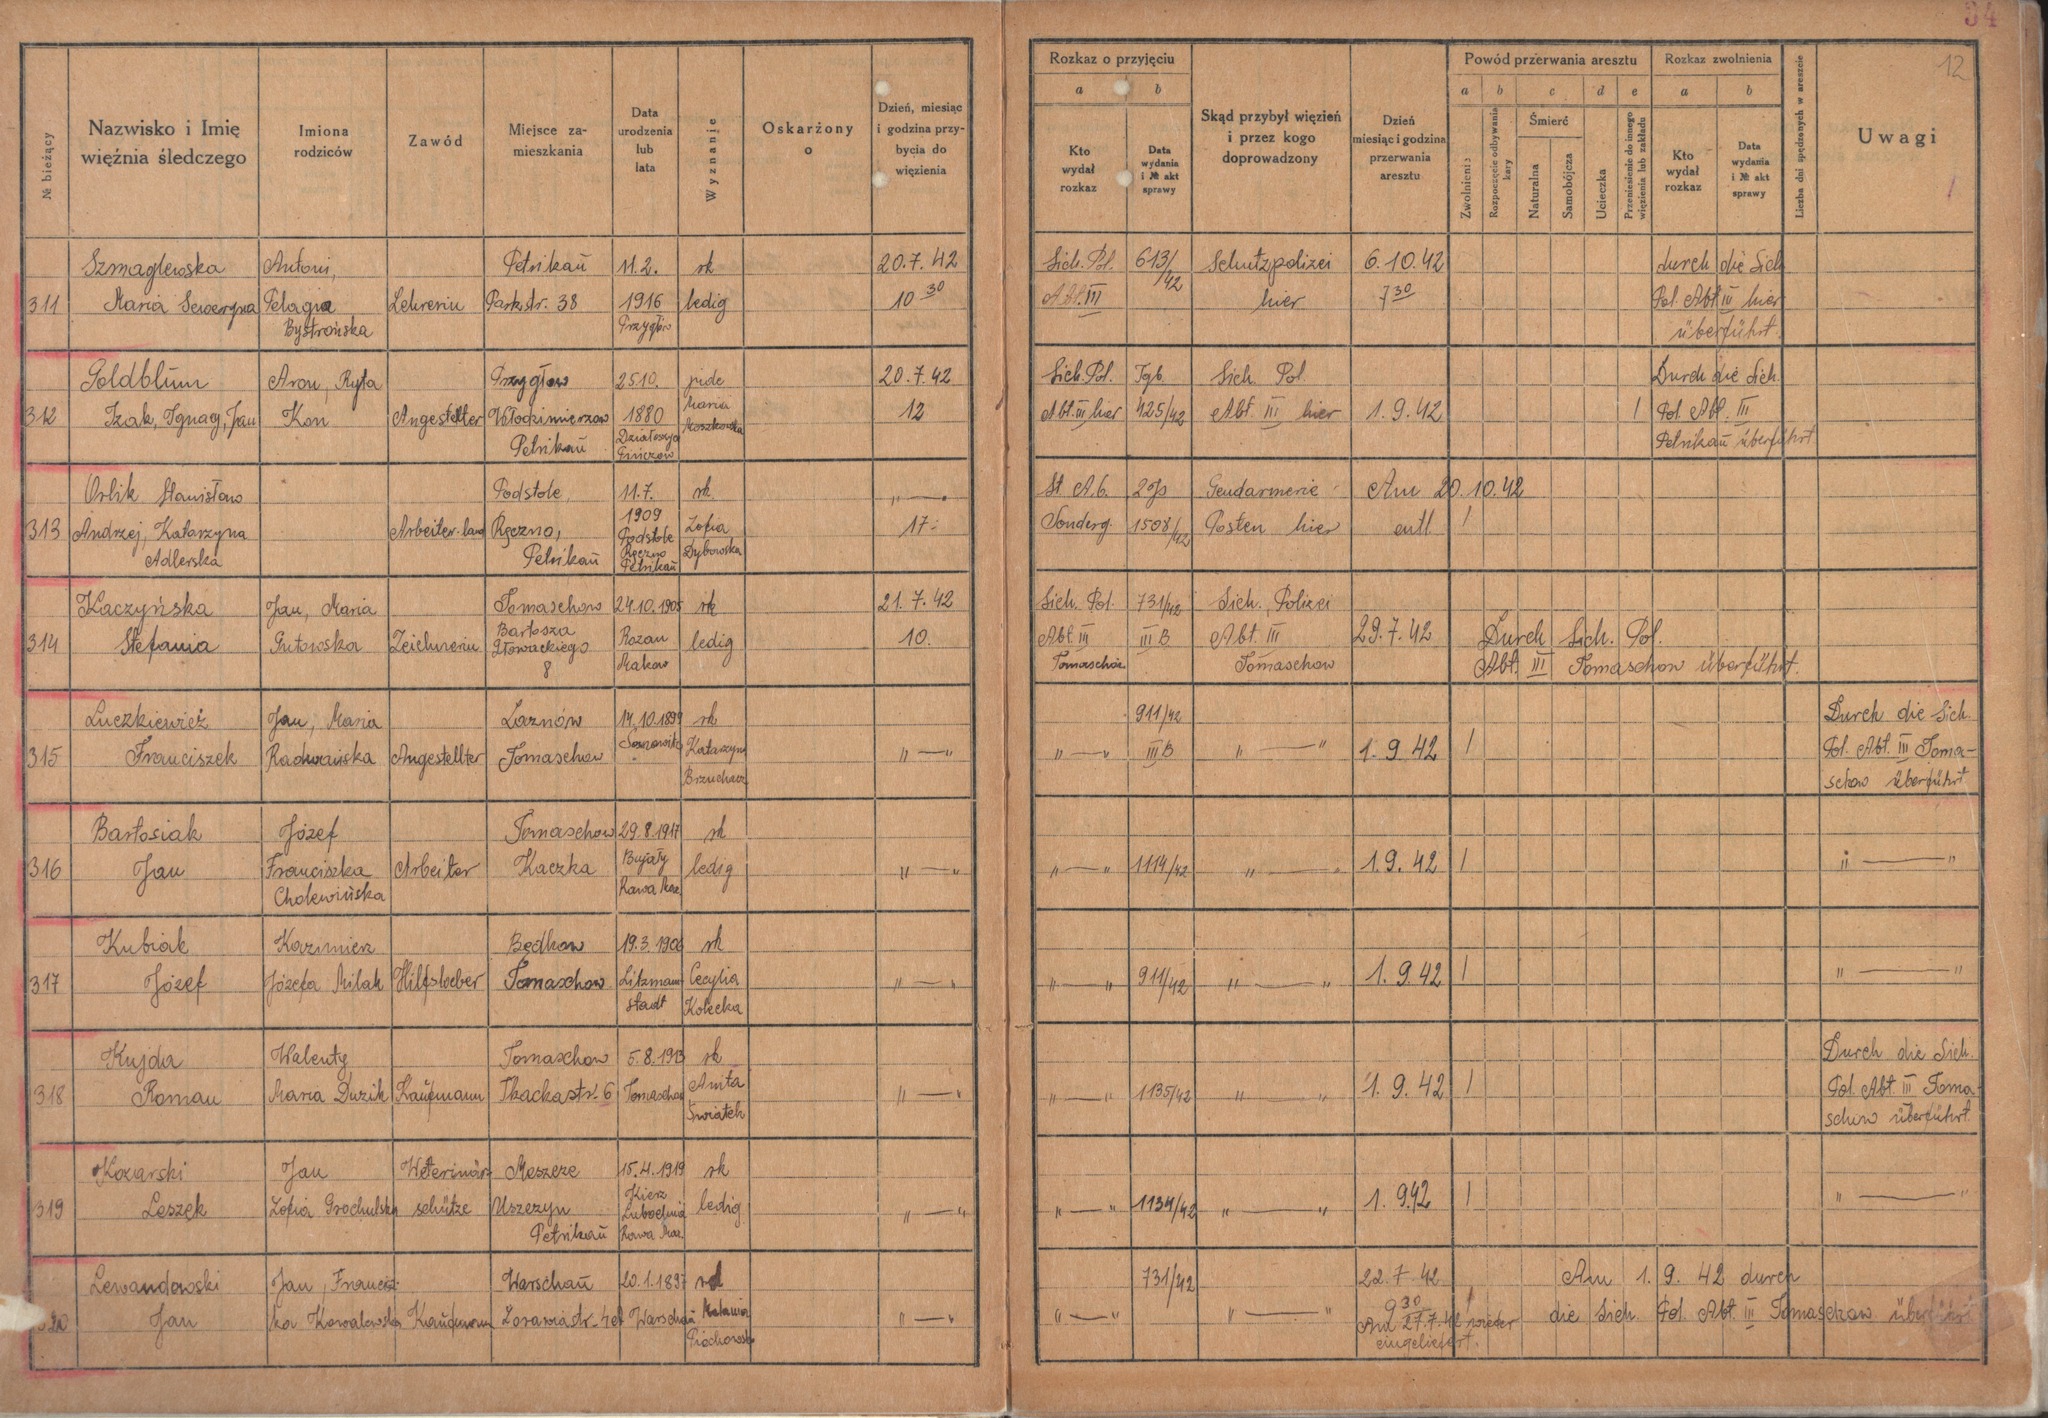 34
12
№ bieżący
Nazwisko i Imię więźnia śledczego
Imiona rodziców
Zawód
Miejsce zamieszkania
Data urodzenia lub lata
Wyznanie
Oskarżony o
Dzień, miesiąc i godzina przybycia do więzienia
Rozkaz o przyjęciu
a
b
Kto wydał rozkaz
Data wydania i № akt sprawy
Skąd przybył więzień i przez kogo doprowadzony
Dzień miesiąc i godzina przerwania aresztu
Powód przerwania aresztu
a b c d e
Zwolnienie
Rozpoczęcie odbywania kary
Śmierć
Naturalna
Samobójcza
Ucieczka
Przeniesienie do innego więzienia lub zakładu
Rozkaz zwolnienia
a b
Kto wydał rozkaz
Data wydania i № akt sprawy
Liczba dni spędzonych w areszcie
Uwagi
Szmaglewska Antoni, Petrikau 11.2. rk 20.7.42 Sich. Pol. 613/42 Schutzpolizei 6.10.42 durch die Sich
311 Maria Seweryna Pelagia Lehrerin Parkstr. 38 1916 ledig 10 30 Abt. III hier 7 30 Pol. Abt III hier
Bystrońska Przygłów überführt.
Goldblum Aron, Ryta Przygłow 25.10. jude 20.7.42 Sich. Pol. Tgb. Sich. Pol. Durch die Sich.
312 Izak, Ignacy, Jan Kon Angestellter Włodzimierzow 1880 Maria Moszkowska 12 Abt. III hier 425/42 Abt. III hier 1.9.42 / Pol. Abt. III
Petrikau Działoszyce Pinczow Petrikau überführt
Orlik Stanisław Podstole, 11.7. rk „ — „ St. A.G. 2 Js Gendarmerie Am 20.10.42
313 Andrzej, Katarzyna Arbeiter Ręczno, 1909 Zofia 17. Sonderg. 1508/42 Posten hier entl. /
Adlerska Petrikau Podstole Ręczno Petrikau Dybowska
Kaczyńska Jan, Maria Tomaschow 24.10.1905 rk 21.7.42 Sich. Pol. 731/42 Sich. Polizei
314 Stefania Gutowska Zeichnerin Bartosza Głowackiego 8 Rozan Makow ledig 10. Abt. III III B Abt. III 29.7.42 Durch Sich. Pol.
Tomaschow Tomaschow Abt. III Tomaschow überführt.
Luczkiewicz Jan, Maria Łaznów 14.10.1899 rk 911/42 Durch die Sich.
315 Franciszek Radwańska Angestellter Tomaschow Katarzyna „ — „ „ — „ III B „ — „ 1.9.42 / Pol. Abt. III Toma-
Brzuchacz schow überführt
Bartosiak Józef Tomaschow 29.8.1917 rk
316 Jan Franciszka Arbeiter Kaczka Bujały ledig „ — „ „ — „ 1114/42 „ — „ 1.9.42 / „ — „
Cholewińska Rawa Maz.
Kubiak Kazimierz Będkow 19.3.1906 rk
317 Józef Józefa Milak Hilfsweber Tomaschow Litzmannstadt Cecylia Kolecka „ — „ „ — „ 911/42 „ — „ 1.9.42 / „ — „
Kujda Walenty Tomaschow 5.8.1913 rk Durch die Sich.
318 Roman Maria Duzik Kaufmann Tkackastr. 6 Tomaschow Anita „ — „ „ — „ 1135/42 „ — „ 1.9.42 / Pol. Abt III Toma-
Światek schow überführt.
Kozarski Jan Weterinär- Meszcze 15.4.1919 rk
319 Leszek Zofia Grochulska schütze Uszczyn Kierz Lubochnia ledig „ — „ „ — „ 1134/42 „ — „ 1.9.42 / „ — „
Petrikau Rawa Maz.
Lewandowski Jan, Francis- Warschau 20.1.1897 rk 731/42 22.7.42 Am 1.9.42 durch
320 Jan ka Kowalewska Kaufmann Warschau „ — „ „ — „ „ — „ 9 30 die Sich. Pol. Abt. III Tomaschow überführt
Am 27.7.42 wieder
eingeliefert.